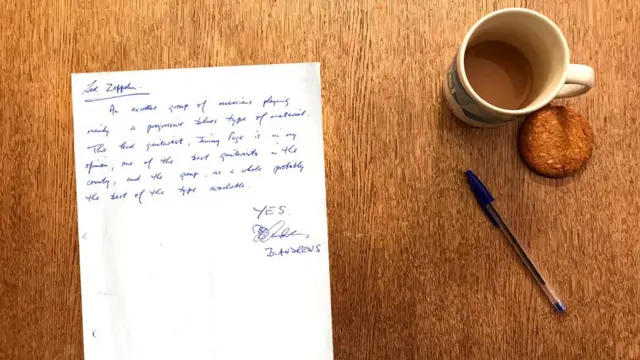 Led Zeppelin.
An excellent group of musicians playing
mainly a progressive blues type of material.
The lead guitarist, Jimmy Page is in my
opinion, one of the best guitarists in the
country, and the group, as a whole probably
the best of the type available.
YES.
B. ANDREWS